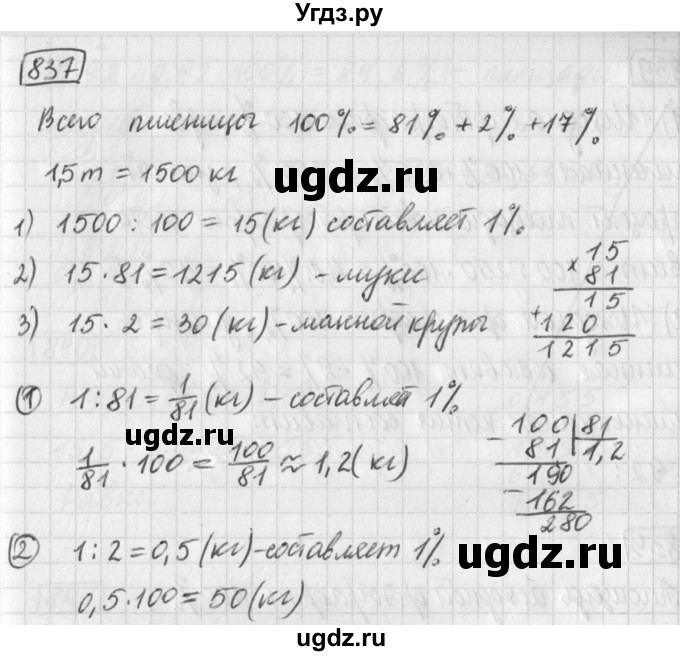 Угдз.ру
837
Всего пшеницы 100% = 81% + 2% + 17%
1,5т = 1500 кг
1) 1500 : 100 = 15 (кг) составляет 1%
2) 15 · 81 = 1215 (кг) - муки
3) 15 · 2 = 30 (кг) - манной крупы
× 15
81
15
+ 120
1215
① 1 : 81 = 1/81 (кг) - составляет 1%
1/81 · 100 = 100/81 ≈ 1,2 (кг)
100 | 81
- 81 | 1,2
190
- 162
280
② 1 : 2 = 0,5 (кг) - составляет 1%
0,5 · 100 = 50 (кг)
ugdz.ru
ugdz.ru
ugdz.ru
ugdz.ru
ugdz.ru